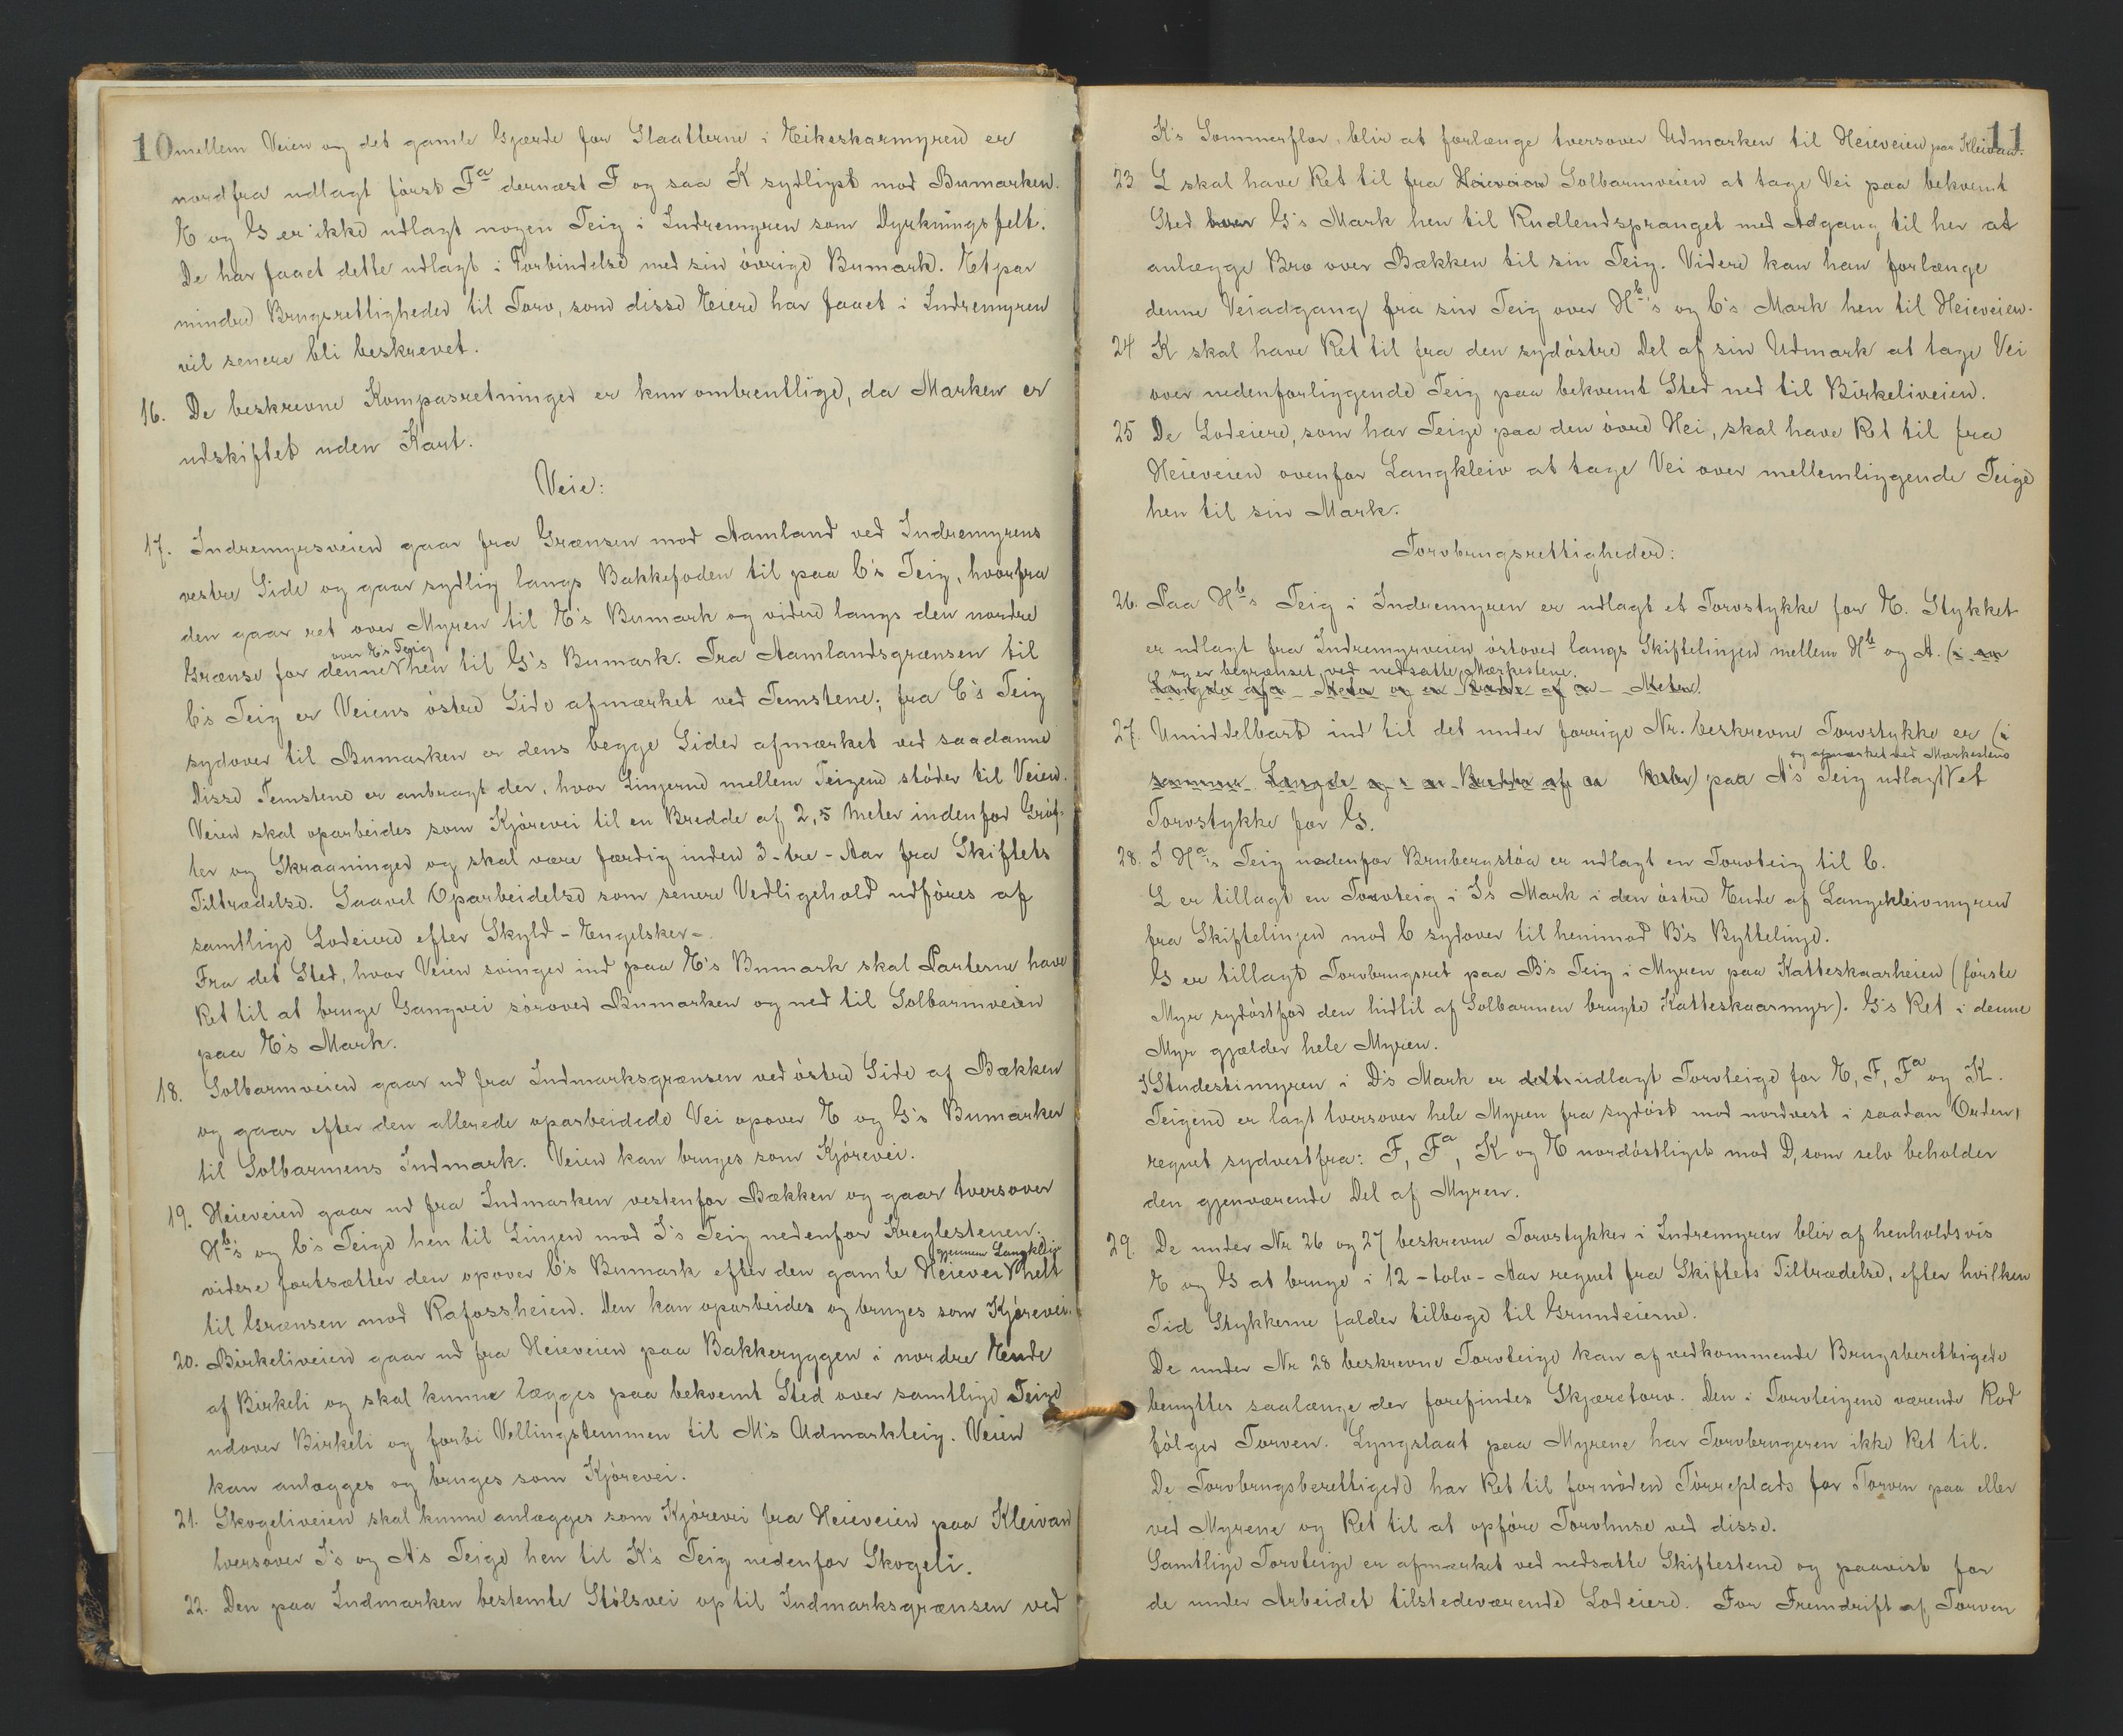 10 mellem Veien og det gamle Gjærde for Slaatterne i Eikeskarmyren er
nordfra udlagt først Fa dernæst F og saa K sydligst mod Bumarken.
E og G er ikke udlagt nogen Teig i Indremyren som Dyrkningsfelt.
De har faaet dette udlagt i Forbindelse med sin øvrige Bumark. Et par
mindre Brugsrettigheder til Torv, som disse Eiere har faaet i Indremyren
vil senere bli beskrevet.
16. De beskrevne Kompasretninger er kun omtrentlige, da Marken er
udskiftet uden Kart.
Veie:
17. Indremyrsveien gaar fra Grænsen mod Aamland ved Indremyrens
vestre Side og gaar sydlig langs Bakkefoden til paa C's Teig, hvorfra
den gaar ret over Myren til E's Bumark og videre langs den nordre
over E's Teig
Grænse for denne hen til G's Bumark. Fra Aamlandsgrænsen til
C's Teig er Veiens østre Side afmærket ved Temstene; fra C's Teig
sydover til Bumarken er dens begge Sider afmærket ved saadanne
Disse Temstene er anbragt der, hvor Linjerne mellem Teigene støder til Veien.
Veien skal oparbeides som Kjørevei til en Bredde af 2,5 Meter indenfor Grøf-
ter og Skraaninger og skal være færdig inden 3-tre-Aar fra Skiftets
Tiltrædelse. Saavel Oparbeidelse som senere Vedligehold udføres af
samtlige Lodeiere efter Skyld - Engelsker -
Fra det Sted, hvor Veien svinger ind paa E's Bumark skal Parterne have
Ret til at bruge Gangvei sørover Bumarken og ned til Solbarmveien
paa E's Mark.
18. Solbarmveien gaar ud fra Indmarksgrænsen ved østre Side af Bækken
og gaar efter den allerede oparbeidede Vei opover E og G's Bumarker
til Solbarmens Indmark. Veien kan bruges som Kjørevei.
19. Heieveien gaar ud fra Indmarken vestenfor Bækken og gaar tversover
Hb's og C's Teige hen til Linjen mod I's Teig nedenfor Kreglestenen;
gjennem Langkleiv
videre fortsætter den opover C's Bumark efter den gamle Heievei helt
til Grænsen mod Rafossheien. Den kan oparbeides og bruges som Kjørevei.
20. Birkeliveien gaar ud fra Heieveien paa Bakkeryggen i nordre Ende
af Birkeli og skal kunne lægges paa bekvemt Sted over samtlige Teige
udover Birkeli og forbi Vellingstemmen til M's Udmarkteig. Veien
kan anlægges og bruges som Kjørevei.
21. Skogeliveien skal kunne anlægges som Kjørevei fra Heieveien paa Kleivan
tversover I's og A's Teige hen til K's Teig nedenfor Skogeli.
22. Den paa Indmarken bestemte Stølsvei op til Indmarksgrænsen ved
11
K's Sommerflor, blir at forlænge tversover Udmarken til Heieveien paa Kleivan.
23 L skal have Ret til fra Heieveien Solbarmveien at tage Vei paa bekvemt
Sted over G's Mark hen til Rudlendspranget med Adgang til her at
anlægge Bro over Bækken til sin Teig. Videre kan han forlænge
denne Veiadgang fra sin Teig over Hb's og C's Mark hen til Heieveien.
24 K skal have Ret til fra den sydøstre Del af sin Udmark at tage Vei
over nedenforliggende Teig paa bekvemt Sted ned til Birkeliveien.
25 De Lodeiere, som har Teige paa den øvre Hei, skal have Ret til fra
Heieveien ovenfor Langkleiv at tage Vei over mellemliggende Teige
hen til sin Mark.
Torvbrugsrettigheder:
26. Paa Hb's Teig i Indremyren er udlagt et Torvstykke for E. Stykket
er udlagt fra Indremyrveien østover langs Skiftelinjen mellem Hb og A. (i en
og er begrænset ved nedsatte Mærkestene.
Længde af a - Meter og en Bredde af a - Meter).
27. Umiddelbart ind til det under forrige Nr. beskrevne Torvstykke er (i
og afmærket ved Mærkestene
samme Længde og i en Bredde af a Meter) paa A's Teig udlagt et
Torvstykke for G.
28. I Ha's Teig nedenfor Brubergstøa er udlagt en Torvteig til C.
L er tillagt en Torvteig i I's Mark i den østre Ende af Langekleivmyren
fra Skiftelinjen mod C sydover til henimod B's Byttelinje.
G er tillagt Torvbrugsret paa B's Teig i Myren paa Katteskaarheien (første
Myr sydøstfor den hidtil af Solbarmen brugte Katteskaarmyr). G's Ret i denne
Myr gjælder hele Myren.
I Studestimyren i D's Mark er udlagt Torvteige for E, F, Fa og K.
Teigene er lagt tversover hele Myren fra sydøst mod nordvest i saadan Orden,
regnet sydvestfra: F, Fa, K og E nordøstligst mod D, som selv beholder
den gjenværende Del af Myren.
29. De under Nr 26 og 27 beskrevne Torvstykker i Indremyren blir af henholdsvis
E og G at bruge i 12-tolv-Aar regnet fra Skiftets Tiltrædelse, efter hvilken
Tid Stykkerne falder tilbage til Grundeierne.
De under Nr 28 beskrevne Torvteige kan af vedkommende Brugsberettigede
benyttes saalænge der forefindes Skjæretorv. Den i Torvteigene værende Rod
følger Torven. Lyngslaat paa Myrene har Torvbrugeren ikke Ret til.
De Torvbrugsberettigede har Ret til fornøden Tørreplads for Torven paa eller
ved Myrene og Ret til at opføre Torvhuse ved disse.
Samtlige Torvteige er afmærket ved nedsatte Skiftestene og paavist for
de under Arbeidet tilstedeværende Lodeiere. For Fremdrift af Torven